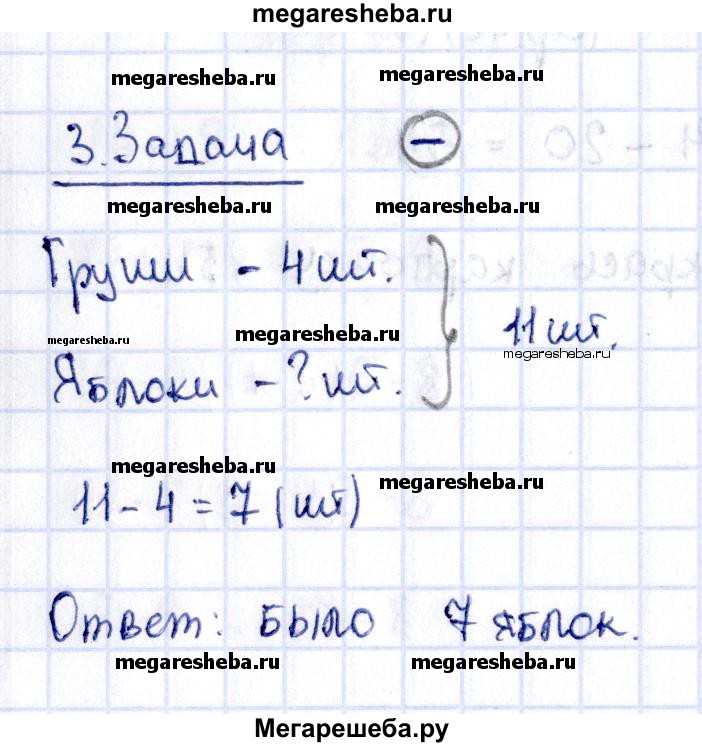 megaresheba.ru
megaresheba.ru megaresheba.ru
3. Задача −
megaresheba.ru megaresheba.ru
Груши - 4 шт.
11 шт.
megaresheba.ru megaresheba.ru megaresheba.ru
Яблоки - ? шт.
megaresheba.ru megaresheba.ru
11 - 4 = 7 (шт)
Ответ: было 7 яблок.
megaresheba.ru megaresheba.ru
Мегарешеба.ру